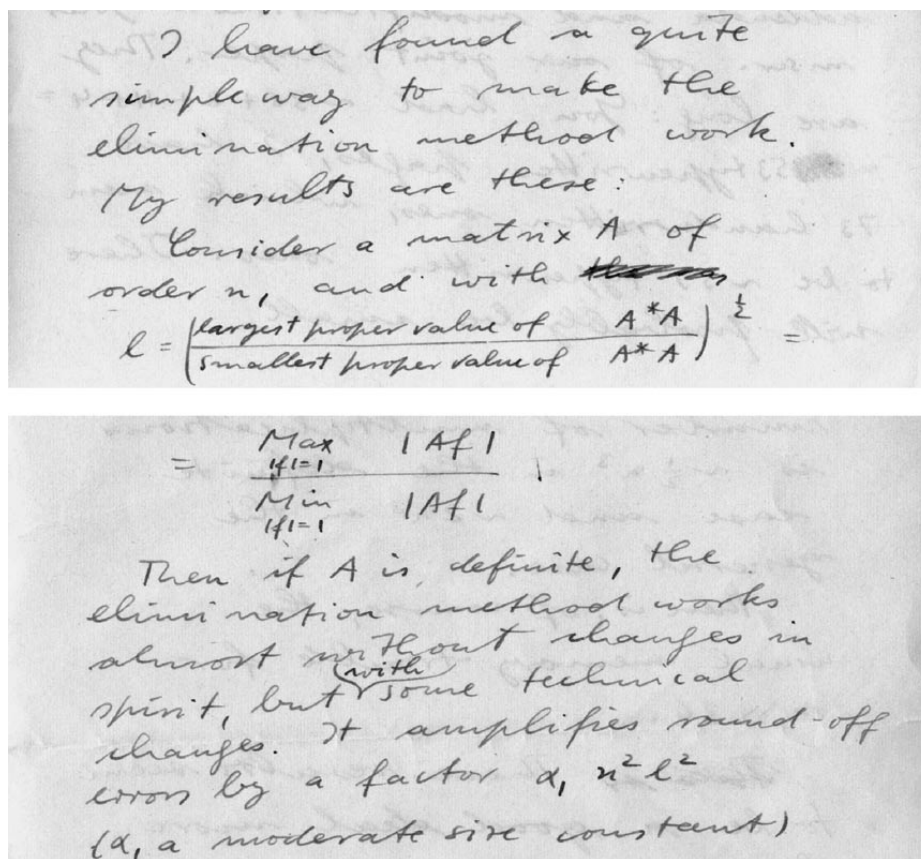 I have found a quite
simple way to make the
elimination method work.
My results are these:
Consider a matrix A of
order n, and with
l = (largest proper value of A*A / smallest proper value of A*A)^½ =
= Max |f|=1 |Af| / Min |f|=1 |Af| .
Then if A is, definite, the
elimination method works
almost without changes in
spirit, but with some technical
changes. It amplifies round-off
errors by a factor α, n² l²
(α, a moderate size constant)